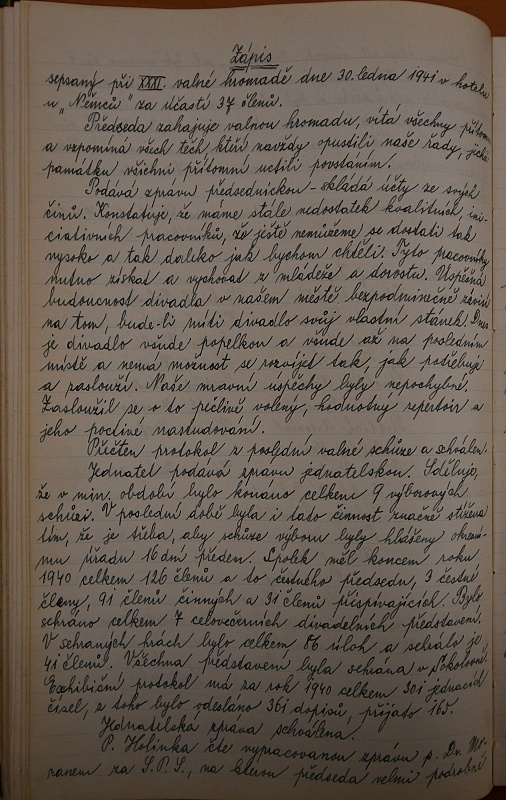 Zápis
sepsaný při XXXI. valné hromadě dne 30. ledna 1941 v hotelu
u „Němců" za účasti 37 členů.
Předseda zahajuje valnou hromadu, vítá všechny přítom
a vzpomíná všech těch, kteří navždy opustili naše řady, jichž
památku všichni přítomní uctili povstáním.
Podává zprávu předsednickou - skládá účty ze svých
činů. Konstatuje, že máme stále nedostatek kvalitních, ini-
ciativních pracovníků, že ještě nemůžeme se dostati tak
vysoko a tak daleko jak bychom chtěli. Tyto pracovníky
nutno získat a vychovat z mládeže a dorostu. Úspěšná
budoucnost divadla v našem městě bezpodmínečně závisí
na tom, bude-li míti divadlo svůj vlastní stánek. Dnes
je divadlo všude popelkou a všude až na posledním
místě a nemá možnost se rozvíjet tak, jak potřebuje
a zaslouží. Naše mravní úspěchy byly nepochybné.
Zasloužil se o to pečlivě volený, hodnotný repertoir a
jeho poctivé nastudování.
Přečten protokol z poslední valné schůze a schválen.
Jednatel podává zprávu jednatelskou. Sděluje,
že v min. období bylo konáno celkem 9 výborových
schůzí. V poslední době byla i tato činnost značně stížena
tím, že je třeba, aby schůze výboru byly hlášeny okresní-
mu úřadu 16 dní předem. Spolek měl koncem roku
1940 celkem 126 členů a to čestného předsedu, 3 čestné
členy, 91 členů činných a 31 členů přispívajících. Bylo
sehráno celkem 7 celovečerních divadelních představení.
V sehraných hrách bylo celkem 86 úloh a sehrálo je
41 členů. Všechna představení byla sehrána v Sokolovně.
Exhibiční protokol má za rok 1940 celkem 301 jednacích
čísel, z toho bylo odesláno 361 dopisů, přijato 165.
Jednatelská zpráva schválena.
P. Holinka čte vypracovanou zprávu p. Dr. Mo-
ranem za S.P.S., na kterou předseda velmi podrobně